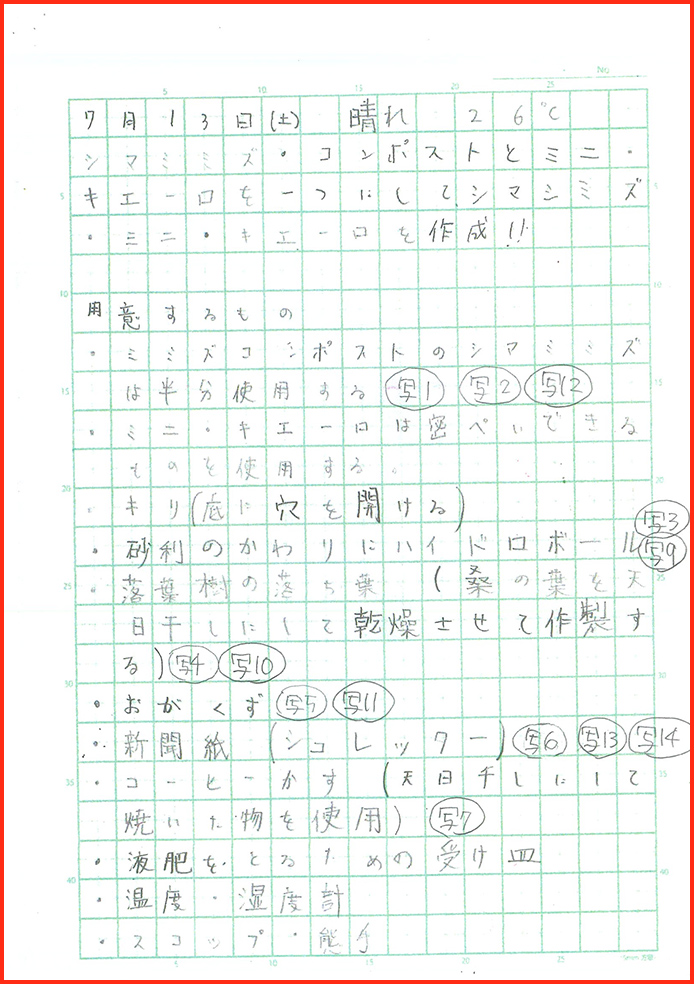 No.
5 10 15 20 25
7月13日(土) 晴れ 26℃
シマミミズ・コンポストとミニ・
キエーロを一つにしてシマシミズ
・ミニ・キエーロを作成!!
用意するもの
・ミミズコンポストのシマミミズ
は半分使用する 写1 写2 写12
・ミニ・キエーロは密ぺいできる
ものを使用する。
・キリ(底に穴を開ける)
・砂利のかわりにハイドロボール 写3 写9
・落葉樹の落ち葉(桑の葉を天
日干しにして乾燥させて作製す
る) 写4 写10
・おがくず 写5 写11
・新聞紙(シュレッター) 写6 写13 写14
・コーヒーかす(天日干しにして
焼いた物を使用) 写7
・液肥をとるための受け皿
・温度・湿度計
・スコップ・熊手
5 10 15 20 25